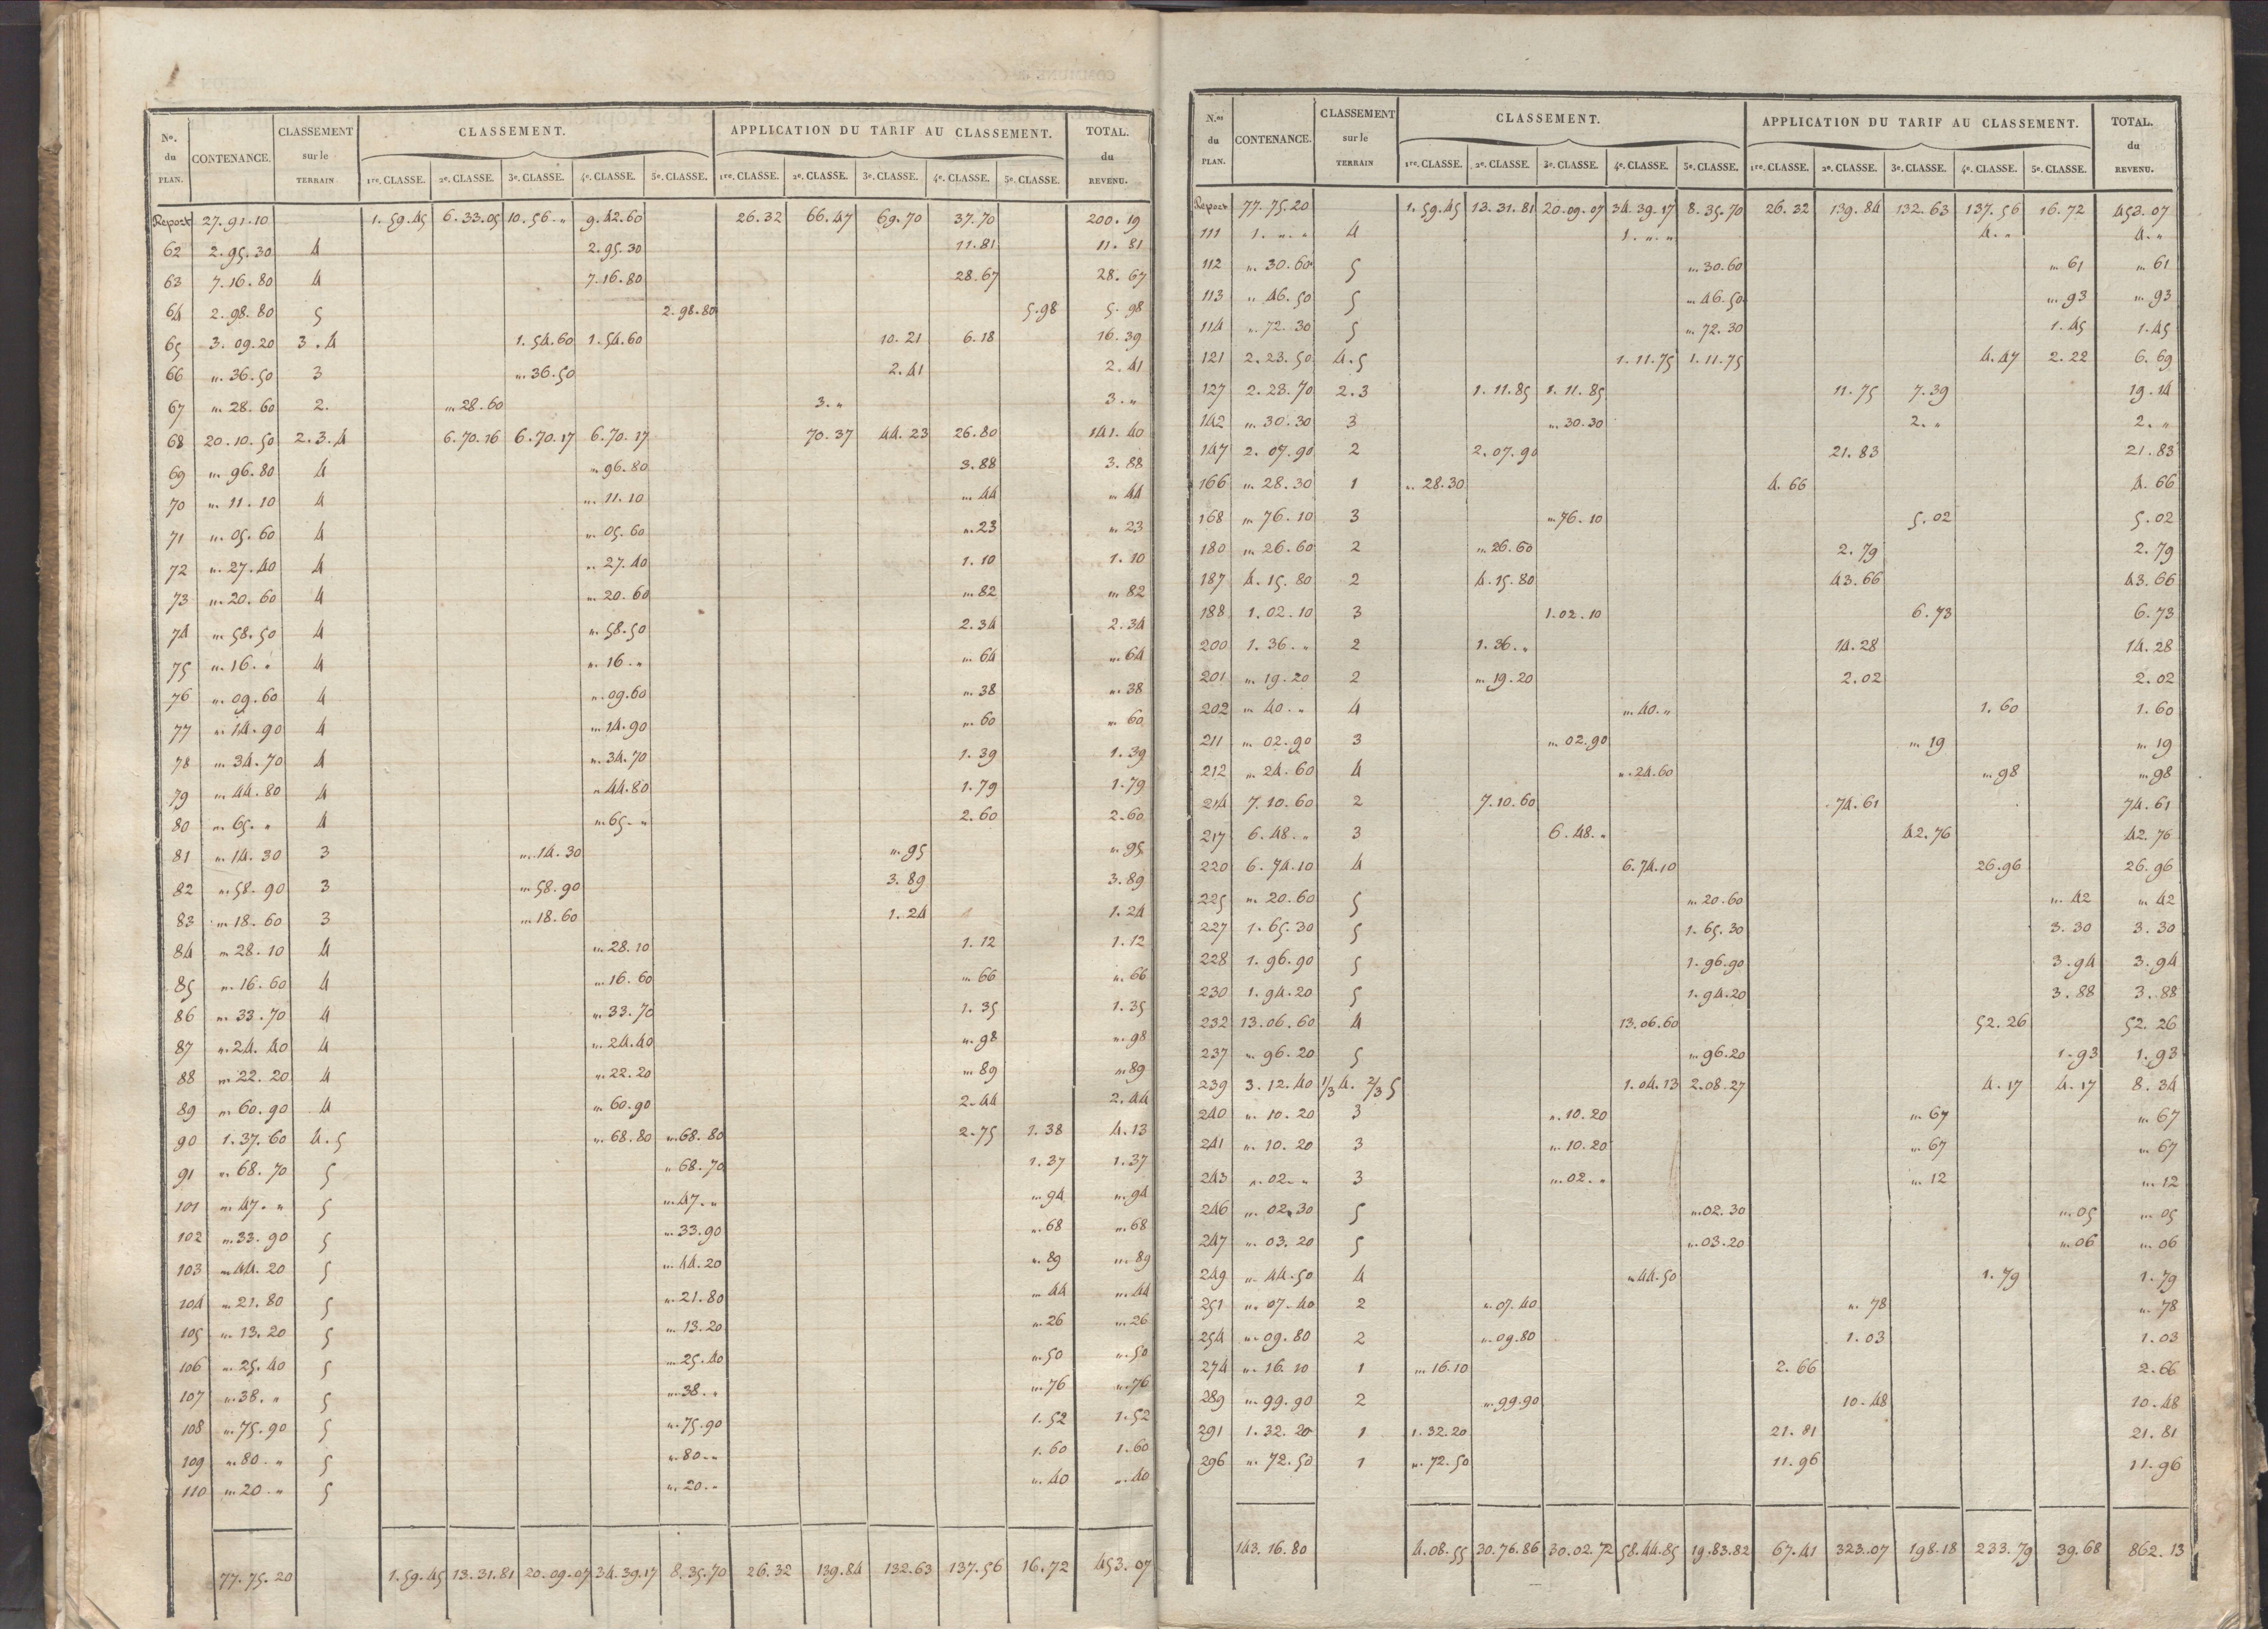 N°. du PLAN. CONTENANCE. CLASSEMENT sur le TERRAIN CLASSEMENT. APPLICATION DU TARIF AU CLASSEMENT. TOTAL. du REVENU.
1re. CLASSE. 2e. CLASSE. 3e. CLASSE. 4e. CLASSE. 5e. CLASSE. 1re. CLASSE. 2e. CLASSE. 3e. CLASSE. 4e. CLASSE. 5e. CLASSE.
Report 27.91.10 1.59.45 6.33.05 10.56.„ 9.42.60 26.32 66.47 69.70 37.70 200.19
62 2.95.30 4 2.95.30 11.81 11.81
63 7.16.80 4 7.16.80 28.67 28.67
64 2.98.80 5 2.98.80 5.98 5.98
65 3.09.20 3.4 1.54.60 1.54.60 10.21 6.18 16.39
66 „.36.50 3 „.36.50 2.41 2.41
67 „.28.60 2. „.28.60 3.„ 3.„
68 20.10.50 2.3.4 6.70.16 6.70.17 6.70.17 70.37 44.23 26.80 141.40
69 „.96.80 4 „.96.80 3.88 3.88
70 „.11.10 4 „.11.10 „.44 „.44
71 „.05.60 4 „.05.60 „.23 „.23
72 „.27.40 4 „.27.40 1.10 1.10
73 „.20.60 4 „.20.60 „.82 „.82
74 „.58.50 4 „.58.50 2.34 2.34
75 „.16.„ 4 „.16.„ „.64 „.64
76 „.09.60 4 „.09.60 „.38 „.38
77 „.14.90 4 „.14.90 „.60 „.60
78 „.34.70 4 „.34.70 1.39 1.39
79 „.44.80 4 „.44.80 1.79 1.79
80 „.65.„ 4 „.65.„ 2.60 2.60
81 „.14.30 3 „.14.30 „.95 „.95
82 „.58.90 3 „.58.90 3.89 3.89
83 „.18.60 3 „.18.60 1.24 1.24
84 „.28.10 4 „.28.10 1.12 1.12
85 „.16.60 4 „.16.60 „.66 „.66
86 „.33.70 4 „.33.70 1.35 1.35
87 „.24.40 4 „.24.40 „.98 „.98
88 „.22.20 4 „.22.20 „.89 „.89
89 „.60.90 4 „.60.90 2.44 2.44
90 1.37.60 4.5 „.68.80 „.68.80 2.75 1.38 4.13
91 „.68.70 5 „.68.70 1.37 1.37
101 „.47.„ 5 „.47.„ „.94 „.94
102 „.33.90 5 „.33.90 „.68 „.68
103 „.44.20 5 „.44.20 „.89 „.89
104 „.21.80 5 „.21.80 „.44 „.44
105 „.13.20 5 „.13.20 „.26 „.26
106 „.25.40 5 „.25.40 „.50 „.50
107 „.38.„ 5 „.38.„ „.76 „.76
108 „.75.90 5 „.75.90 1.52 1.52
109 „.80.„ 5 „.80.„ 1.60 1.60
110 „.20.„ 5 „.20.„ „.40 „.40
77.75.20 1.59.45 13.31.81 20.09.07 34.39.17 8.35.70 26.32 139.84 132.63 137.56 16.72 453.07
N.os du PLAN. CONTENANCE. CLASSEMENT sur le TERRAIN CLASSEMENT. APPLICATION DU TARIF AU CLASSEMENT. TOTAL. du REVENU.
1re. CLASSE. 2e. CLASSE. 3e. CLASSE. 4e. CLASSE. 5e. CLASSE. 1re. CLASSE. 2e. CLASSE. 3e. CLASSE. 4e. CLASSE. 5e. CLASSE.
Report 77.75.20 1.59.45 13.31.81 20.09.07 34.39.17 8.35.70 26.32 139.84 132.63 137.56 16.72 453.07
111 1.„.„ 4 1.„.„ 4.„ 4.„
112 „.30.60 5 „.30.60 „.61 „.61
113 „.46.50 5 „.46.50 „.93 „.93
114 „.72.30 5 „.72.30 1.45 1.45
121 2.23.50 4.5 1.11.75 1.11.75 4.47 2.22 6.69
127 2.28.70 2.3 1.11.85 1.11.85 11.75 7.39 19.14
142 „.30.30 3 „.30.30 2.„ 2.„
147 2.07.90 2 2.07.90 21.83 21.83
166 „.28.30 1 „.28.30 4.66 4.66
168 „.76.10 3 „.76.10 5.02 5.02
180 „.26.60 2 „.26.60 2.79 2.79
187 4.15.80 2 4.15.80 43.66 43.66
188 1.02.10 3 1.02.10 6.73 6.73
200 1.36.„ 2 1.36.„ 14.28 14.28
201 „.19.20 2 „.19.20 2.02 2.02
202 „.40.„ 4 „.40.„ 1.60 1.60
211 „.02.90 3 „.02.90 „.19 „.19
212 „.24.60 4 „.24.60 „.98 „.98
214 7.10.60 2 7.10.60 74.61 74.61
217 6.48.„ 3 6.48.„ 42.76 42.76
220 6.74.10 4 6.74.10 26.96 26.96
225 „.20.60 5 „.20.60 „.42 „.42
227 1.65.30 5 1.65.30 3.30 3.30
228 1.96.90 5 1.96.90 3.94 3.94
230 1.94.20 5 1.94.20 3.88 3.88
232 13.06.60 4 13.06.60 52.26 52.26
237 „.96.20 5 „.96.20 1.93 1.93
239 3.12.40 1/3 4. 2/3 5 1.04.13 2.08.27 4.17 4.17 8.34
240 „.10.20 3 „.10.20 „.67 „.67
241 „.10.20 3 „.10.20 „.67 „.67
243 „.02.„ 3 „.02.„ „.12 „.12
246 „.02.30 5 „.02.30 „.05 „.05
247 „.03.20 5 „.03.20 „.06 „.06
249 „.44.50 4 „.44.50 1.79 1.79
251 „.07.40 2 „.07.40 „.78 „.78
254 „.09.80 2 „.09.80 1.03 1.03
274 „.16.10 1 „.16.10 2.66 2.66
289 „.99.90 2 „.99.90 10.48 10.48
291 1.32.20 1 1.32.20 21.81 21.81
296 „.72.50 1 „.72.50 11.96 11.96
143.16.80 4.08.55 30.76.86 30.02.72 58.44.85 19.83.82 67.41 323.07 198.18 233.79 39.68 862.13